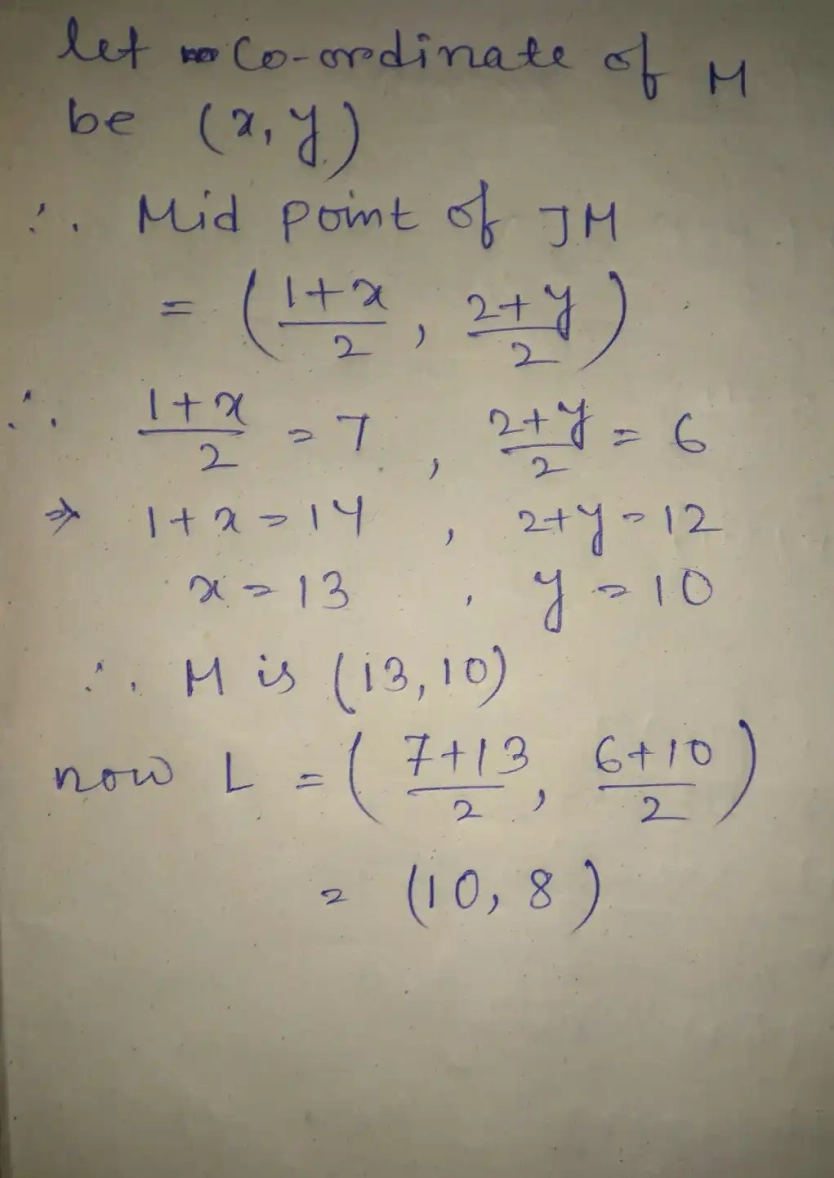 let Co-ordinate of M
be (x, y)
∴ Mid point of JM
= ( 1+x/2 , 2+y/2 )
∴ 1+x/2 = 7 , 2+y/2 = 6
⇒ 1+x=14 , 2+y=12
x=13 , y=10
∴ M is (13,10)
now L = ( 7+13/2 , 6+10/2 )
= (10, 8)